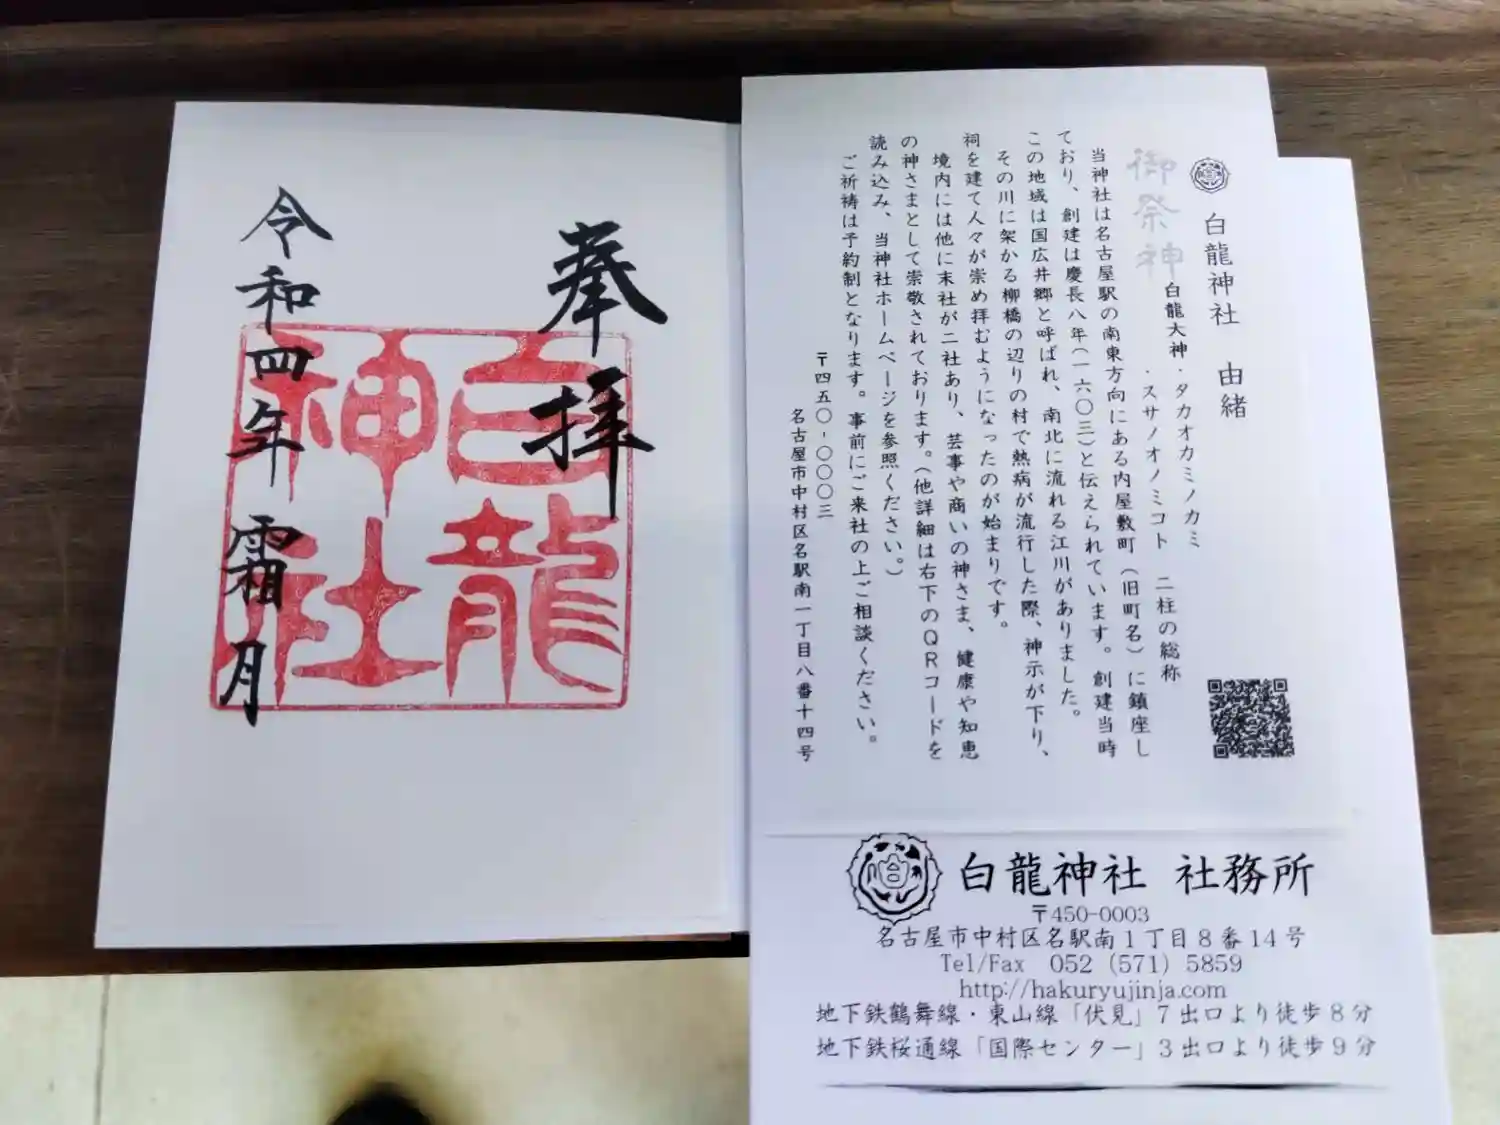 奉拝
白龍
神社
令和四年 霜月
白龍神社 由緒
御祭神 白龍大神・タカオカミノカミ
・スサノオノミコト 二柱の総称
当神社は名古屋駅の南東方向にある内屋敷町(旧町名)に鎮座し
ており、創建は慶長八年(一六〇三)と伝えられています。創建当時
この地域は国広井郷と呼ばれ、南北に流れる江川がありました。
その川に架かる柳橋の辺りの村で熱病が流行した際、神示が下り、
祠を建て人々が崇め拝むようになったのが始まりです。
境内には他に末社が二社あり、芸事や商いの神さま、健康や知恵
の神さまとして崇敬されております。(他詳細は右下のQRコードを
読み込み、当神社ホームページを参照ください。)
ご祈祷は予約制となります。事前にご来社の上ご相談ください。
〒四五〇-〇〇〇三
名古屋市中村区名駅南一丁目八番十四号
白龍神社 社務所
〒450-0003
名古屋市中村区名駅南1丁目8番14号
Tel/Fax 052 (571) 5859
http://hakuryujinja.com
地下鉄鶴舞線・東山線「伏見」7出口より徒歩8分
地下鉄桜通線「国際センター」3出口より徒歩9分